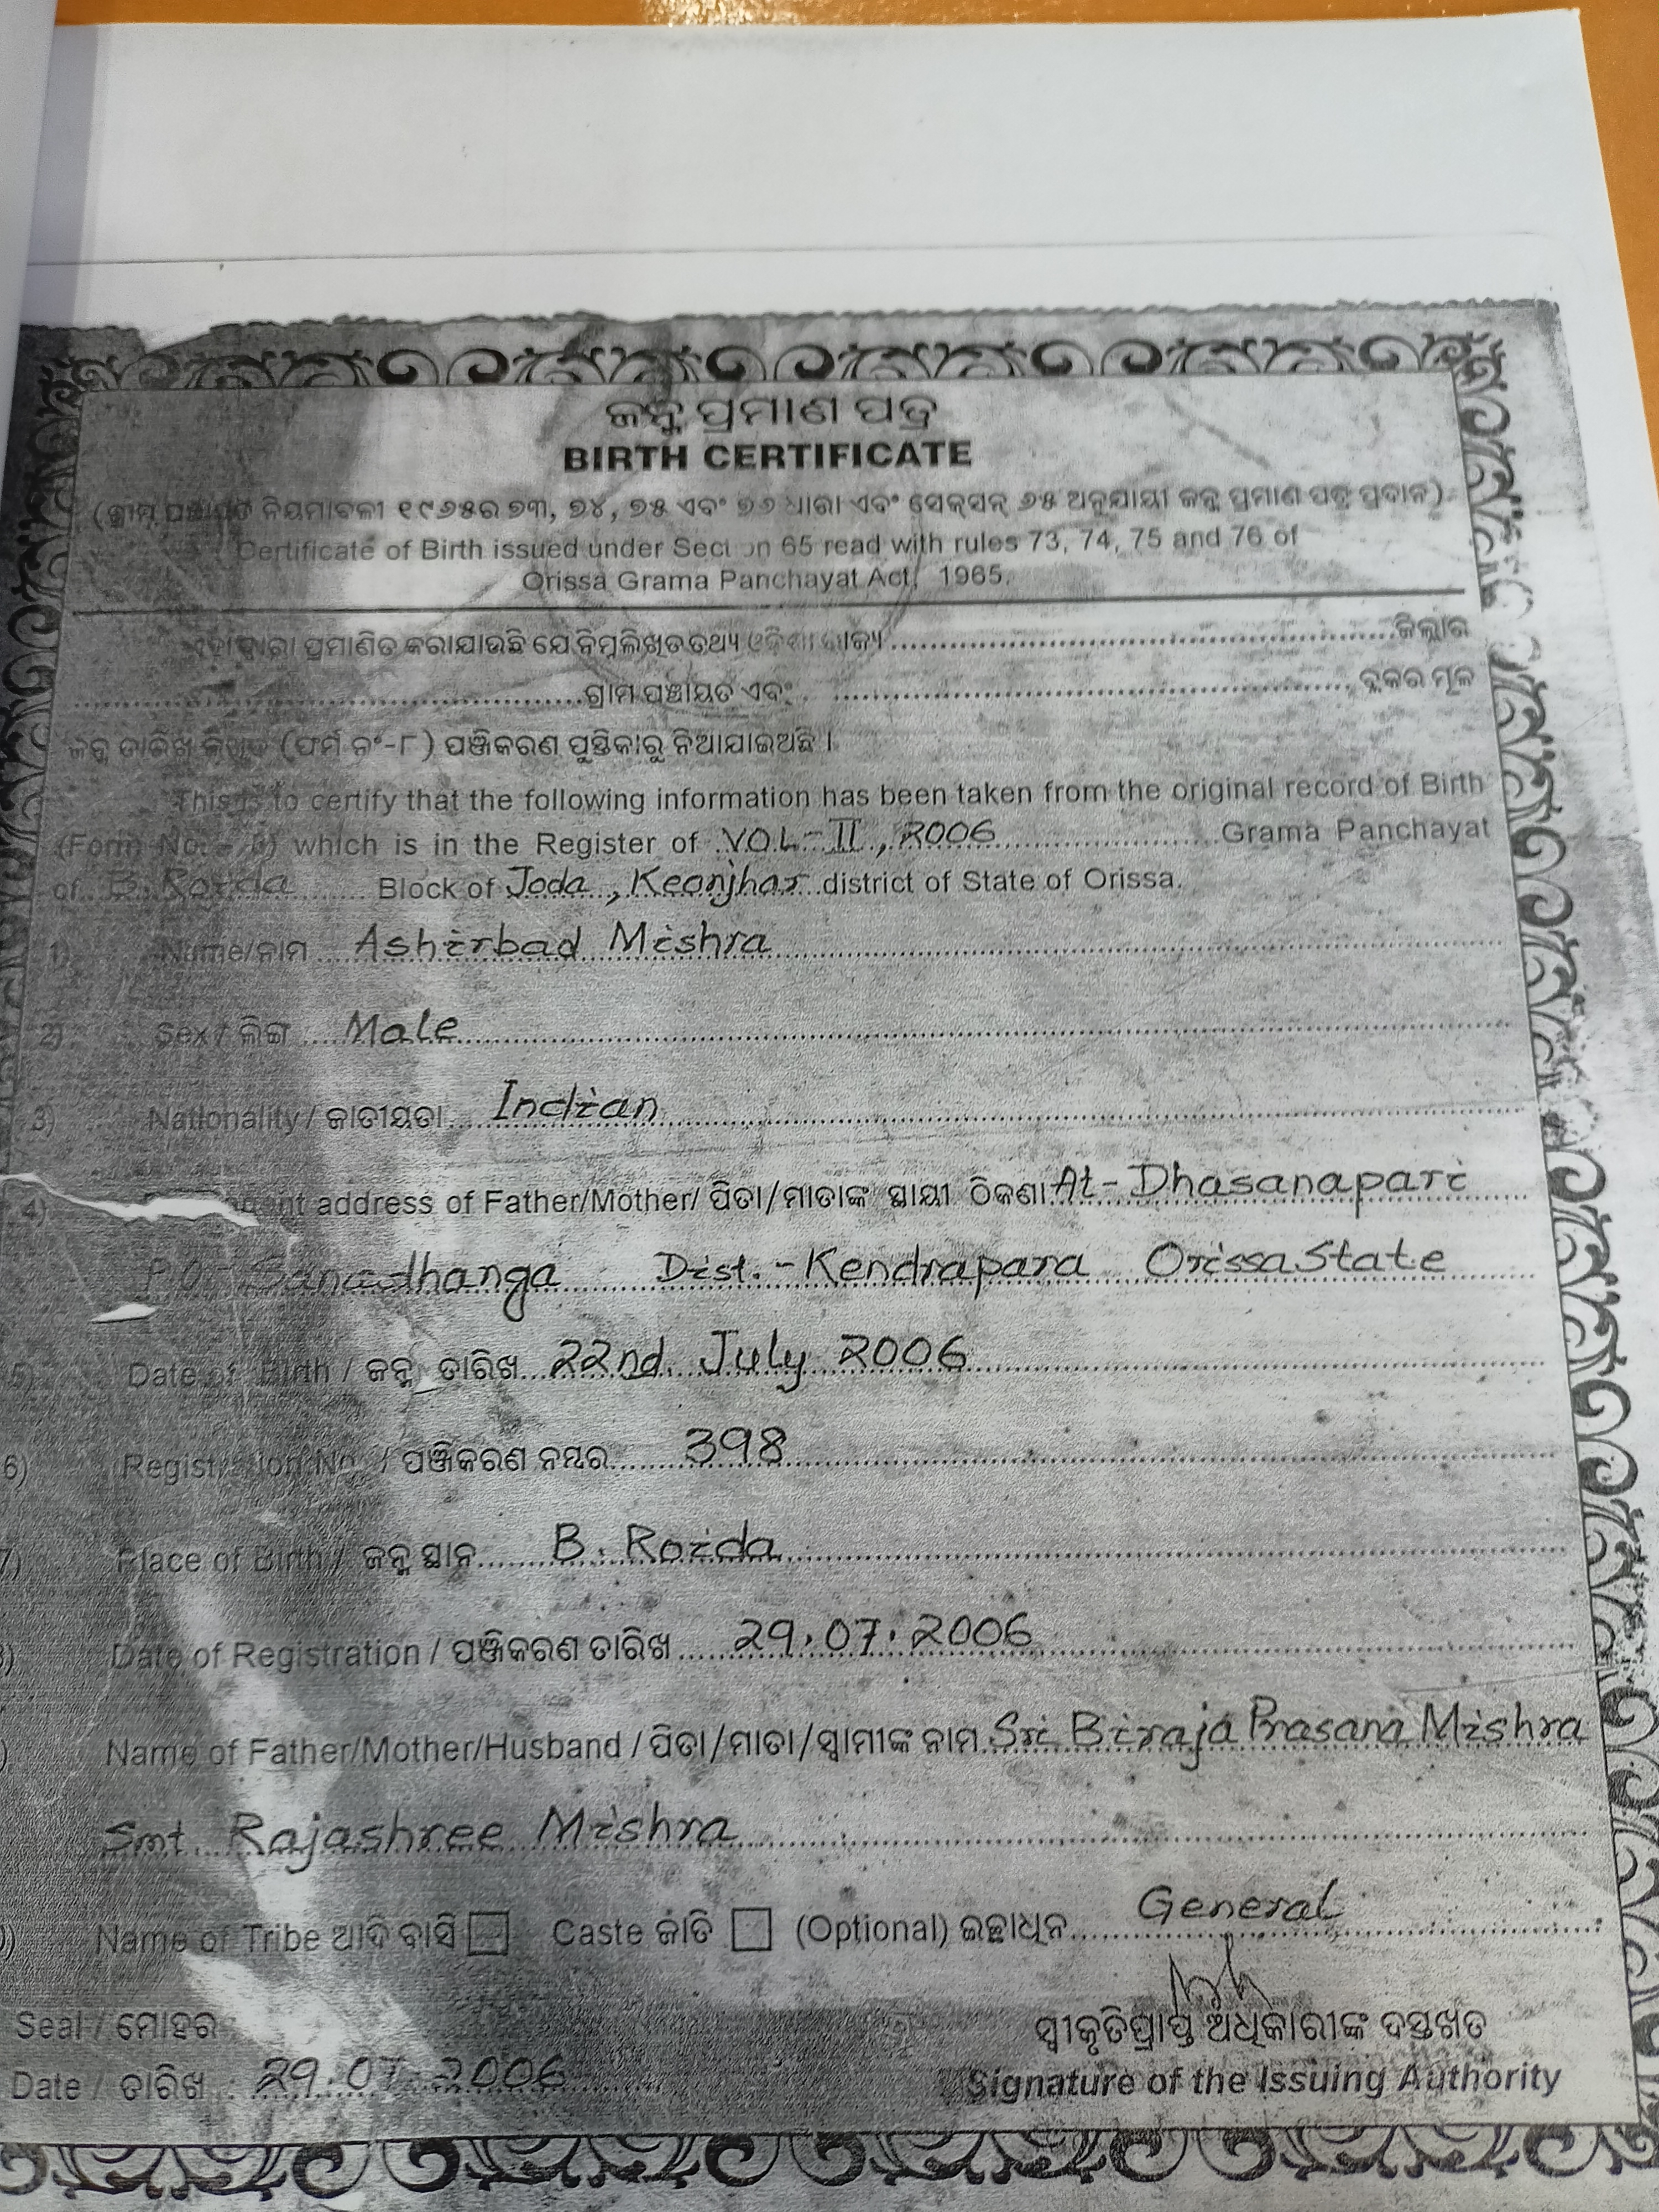 ଜନ୍ମ ପ୍ରମାଣ ପତ୍ର
BIRTH CERTIFICATE
(ଗ୍ରାମ ପଞ୍ଚାୟତ ନିୟମାବଳୀ ୧୯୬୫ର ୭୩, ୭୪, ୭୫ ଏବଂ ୭୬ ଧାରା ଏବଂ ସେକ୍ସନ୍ ୬୫ ଅନୁଯାୟୀ ଜନ୍ମ ପ୍ରମାଣ ପତ୍ର ପ୍ରଦାନ)
Certificate of Birth issued under Section 65 read with rules 73, 74, 75 and 76 of
Orissa Grama Panchayat Act, 1965.
ଏହାଦ୍ୱାରା ପ୍ରମାଣିତ କରାଯାଉଛି ଯେ ନିମ୍ନଲିଖିତ ତଥ୍ୟ ଓଡ଼ିଶା ରାଜ୍ୟ ........ ଜିଲ୍ଲାର
........ ଗ୍ରାମ ପଞ୍ଚାୟତ ଏବଂ ........ ବ୍ଲକର ମୂଳ
ଜନ୍ମ ତାରିଖ ଲିଖିତ (ଫର୍ମ ନଂ-୮) ପଞ୍ଜିକରଣ ପୁସ୍ତିକାରୁ ନିଆଯାଇଅଛି ।
This is to certify that the following information has been taken from the original record of Birth
(Form No. - 8) which is in the Register of VOL-II, 2006 Grama Panchayat
of B. Roida Block of Joda, Keonjhar district of State of Orissa.
1) Name/ନାମ Ashirbad Mishra
2) Sex / ଲିଙ୍ଗ Male
3) Nationality / ଜାତୀୟତା Indian
4) address of Father/Mother/ ପିତା/ମାତାଙ୍କ ସ୍ଥାୟୀ ଠିକଣା At- Dhasanapari
P.O- Dist.- Kendrapara Orissa State
5) Date of Birth / ଜନ୍ମ ତାରିଖ 22nd. July 2006
6) Registration No. / ପଞ୍ଜିକରଣ ନମ୍ବର 398
7) Place of Birth / ଜନ୍ମ ସ୍ଥାନ B. Roida
) Date of Registration / ପଞ୍ଜିକରଣ ତାରିଖ 29.07.2006
) Name of Father/Mother/Husband / ପିତା/ମାତା/ସ୍ୱାମୀଙ୍କ ନାମ Sri Biraja Prasana Mishra
Smt Rajashree Mishra
) Name of Tribe ଆଦି ବାସି Caste ଜାତି (Optional) ଇଚ୍ଛାଧିନ General
ସ୍ୱୀକୃତିପ୍ରାପ୍ତ ଅଧିକାରୀଙ୍କ ଦସ୍ତଖତ
Seal / ମୋହର
Signature of the Issuing Authority
Date / ତାରିଖ : 29.07.2006